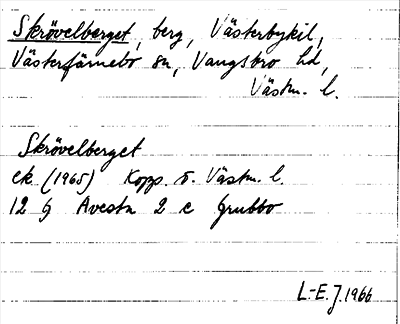 Skrövelberget, berg, Västerbykil,
Västerfärnebo sn, Vangsbro hd,
Västm. l.
Skrövelberget
ek (1965) Kopp. o. Västm. l.
12 G Avesta 2 c Grubbo
L.-E. J. 1966